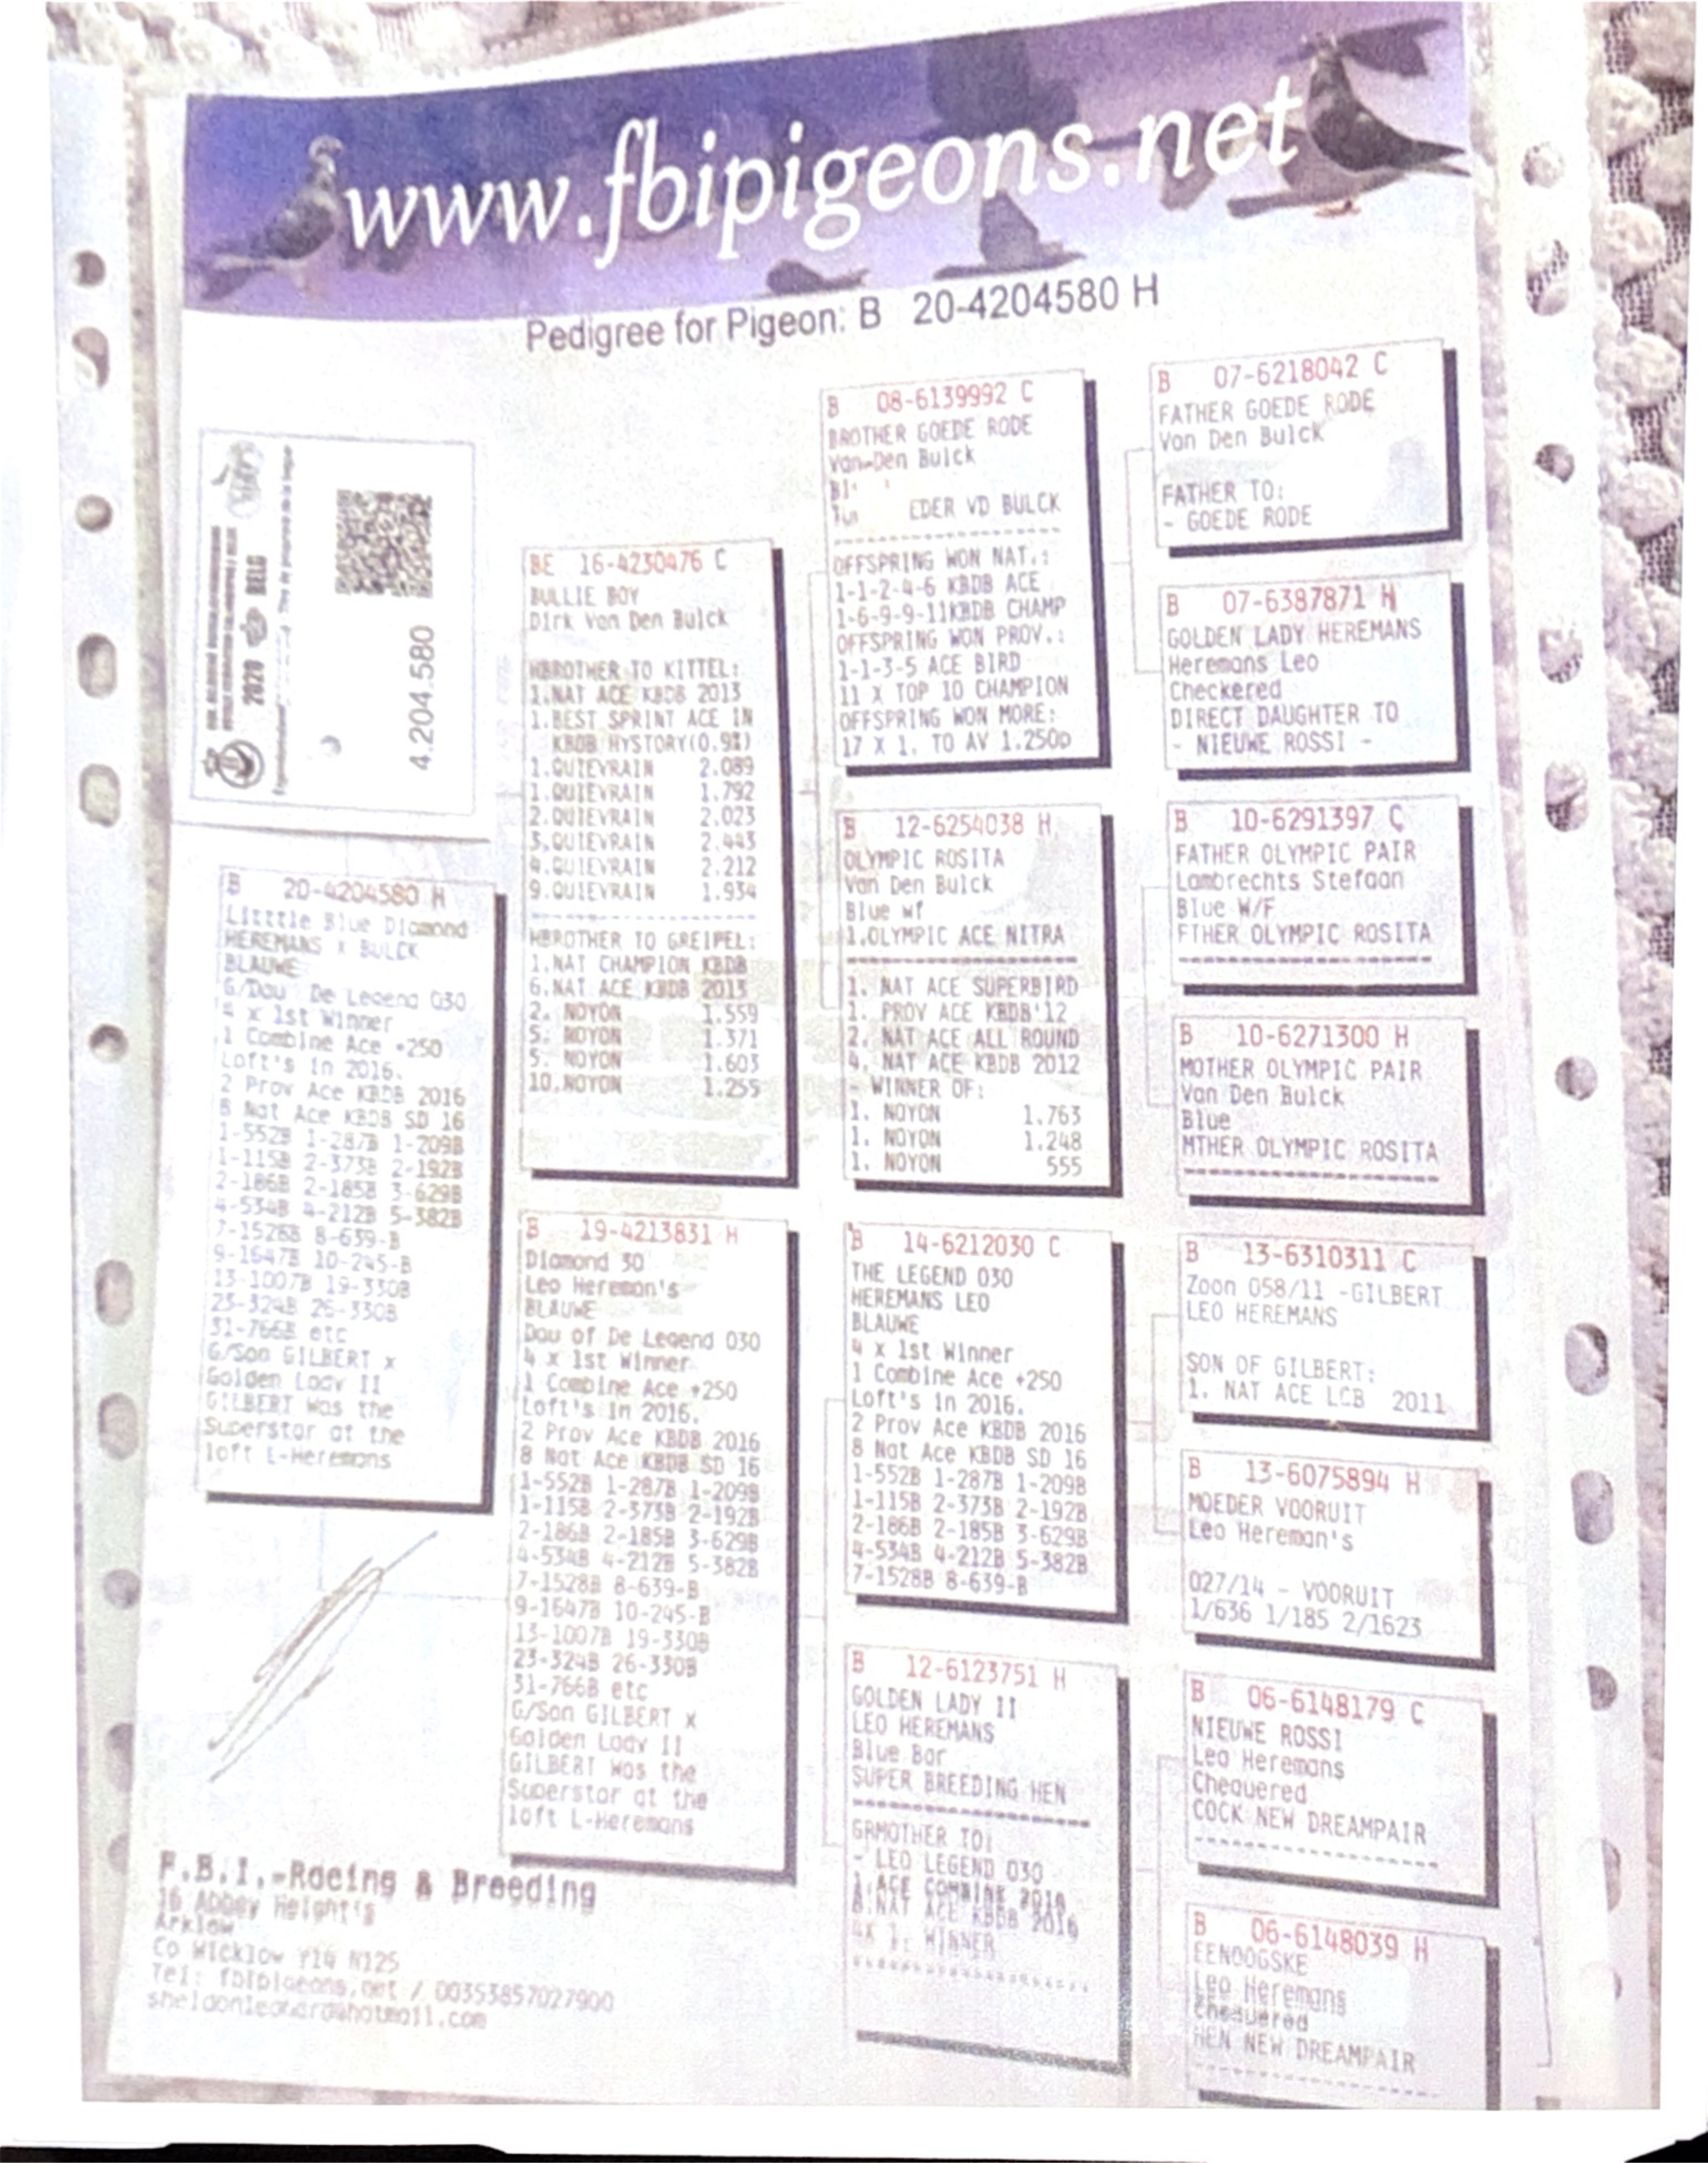 www.fbipigeons.net
Pedigree for Pigeon: B 20-4204580 H
2020 BELG
4.204.580
B 20-4204580 H
Litttle Blue Diamond
HEREMANS X BULCK
BLAUWE
G/Dau De Legend 030
4 x 1st Winner
1 Combine Ace +250
Loft's in 2016.
2 Prov Ace KBDB 2016
8 Nat Ace KBDB SD 16
1-552B 1-287B 1-209B
1-115B 2-373B 2-192B
2-186B 2-185B 3-629B
4-534B 4-212B 5-382B
7-1528B 8-639-B
9-1647B 10-245-B
13-1007B 19-330B
23-324B 26-330B
31-766B etc
G/Son GILBERT x
Golden Lady II
GILBERT was the
Superstar at the
loft L-Heremans
BE 16-4230476 C
BULLIE BOY
Dirk Van Den Bulck
HBROTHER TO KITTEL:
1.NAT ACE KBDB 2013
1.BEST SPRINT ACE IN
KBDB HYSTORY(0.9%)
1.QUIEVRAIN 2.089
1.QUIEVRAIN 1.792
2.QUIEVRAIN 2.023
3.QUIEVRAIN 2.443
4.QUIEVRAIN 2.212
9.QUIEVRAIN 1.934
HBROTHER TO GREIPEL:
1.NAT CHAMPION KBDB
6.NAT ACE KBDB 2013
2. NOYON 1.559
5. NOYON 1.371
5. NOYON 1.603
10.NOYON 1.255
B 19-4213831 H
Diamond 30
Leo Hereman's
BLAUWE
Dau of De Legend 030
4 x 1st Winner
1 Combine Ace +250
Loft's in 2016.
2 Prov Ace KBDB 2016
8 Nat Ace KBDB SD 16
1-552B 1-287B 1-209B
1-115B 2-373B 2-192B
2-186B 2-185B 3-629B
4-534B 4-212B 5-382B
7-1528B 8-639-B
9-1647B 10-245-B
13-1007B 19-330B
23-324B 26-330B
31-766B etc
G/Son GILBERT x
Golden Lady II
GILBERT was the
Superstar at the
loft L-Heremans
B 08-6139992 C
BROTHER GOEDE RODE
Van Den Bulck
EDER VD BULCK
OFFSPRING WON NAT.:
1-1-2-4-6 KBDB ACE
1-6-9-9-11KBDB CHAMP
OFFSPRING WON PROV.:
1-1-3-5 ACE BIRD
11 X TOP 10 CHAMPION
OFFSPRING WON MORE:
17 X 1. TO AV 1.250p
B 12-6254038 H
OLYMPIC ROSITA
Van Den Bulck
Blue wf
1.OLYMPIC ACE NITRA
1. NAT ACE SUPERBIRD
1. PROV ACE KBDB'12
2. NAT ACE ALL ROUND
4. NAT ACE KBDB 2012
- WINNER OF:
1. NOYON 1.763
1. NOYON 1.248
1. NOYON 555
B 14-6212030 C
THE LEGEND 030
HEREMANS LEO
BLAUWE
4 x 1st Winner
1 Combine Ace +250
Loft's in 2016.
2 Prov Ace KBDB 2016
8 Nat Ace KBDB SD 16
1-552B 1-287B 1-209B
1-115B 2-373B 2-192B
2-186B 2-185B 3-629B
4-534B 4-212B 5-382B
7-1528B 8-639-B
B 12-6123751 H
GOLDEN LADY II
LEO HEREMANS
Blue Bar
SUPER BREEDING HEN
GRMOTHER TO:
- LEO LEGEND 030
1.ACE COMBINE 2016
8.NAT ACE KBDB 2016
4X 1. WINNER
B 07-6218042 C
FATHER GOEDE RODE
Van Den Bulck
FATHER TO:
- GOEDE RODE
B 07-6387871 H
GOLDEN LADY HEREMANS
Heremans Leo
Checkered
DIRECT DAUGHTER TO
- NIEUWE ROSSI -
B 10-6291397 C
FATHER OLYMPIC PAIR
Lambrechts Stefaan
Blue W/F
FTHER OLYMPIC ROSITA
B 10-6271300 H
MOTHER OLYMPIC PAIR
Van Den Bulck
Blue
MTHER OLYMPIC ROSITA
B 13-6310311 C
Zoon 058/11 -GILBERT
LEO HEREMANS
SON OF GILBERT:
1. NAT ACE LCB 2011
B 13-6075894 H
MOEDER VOORUIT
Leo Hereman's
027/14 - VOORUIT
1/636 1/185 2/1623
B 06-6148179 C
NIEUWE ROSSI
Leo Heremans
Chequered
COCK NEW DREAMPAIR
B 06-6148039 H
EENOOGSKE
Leo Heremans
Chequered
HEN NEW DREAMPAIR
F.B.I.-Racing & Breeding
16 Abbey Height's
Arklow
Co Wicklow Y14 N125
Tel: fbipigeons.net / 00353857027900
sheldonleonard@hotmail.com